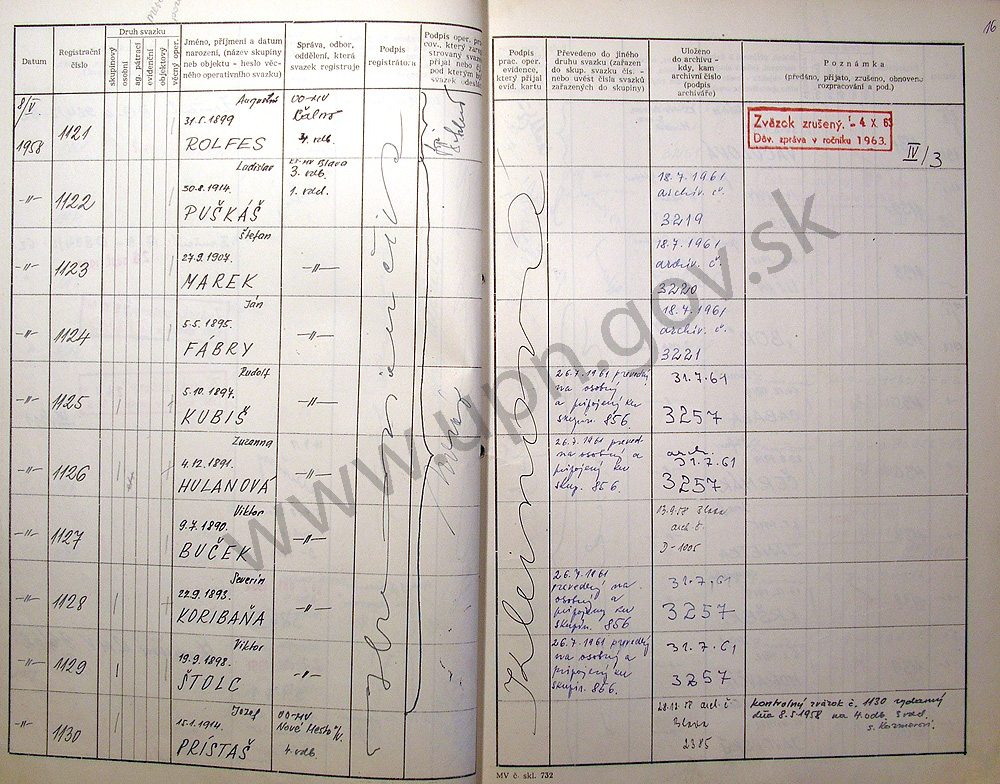 16
Datum
Registrační
číslo
Druh svazku
skupinový
osobní
ag. pátrací
evidenční
objektový
věcný oper.
Jméno, příjmení a datum
narození, (název skupiny
neb objektu - heslo věc-
ného operativního svazku)
Správa, odbor,
oddělení, která
svazek registruje
Podpis
registrátora
Podpis oper. pra-
cov., který zare-
strovaný svaz
přijal nebo č.
pod kterým by
svazek odeslá
Podpis
prac. oper.
evidence,
který přijal
evid. kartu
Převedeno do jiného
druhu svazku (zařazen
do skup. svazku čís. -
nebo uvést čísla svazků
zařazených do skupiny)
Uloženo
do archivu -
kdy, kam
archivní číslo
(podpis
archiváře)
Poznámka
(předáno, přijato, zrušeno, obnoveno
rozpracování a pod.)
8/V.
1958
1121
Augustus
31.5.1899
ROLFES
OO-MV
4. odb.
Zväzok zrušený. - 4 X. 63
Dôv. zpráva v ročníku 1963.
IV/3
-"- 1122
Ladislav
30.8.1914.
PUŠKÁŠ
KS-MV Blava
3. odb.
1. odd.
18.7.1961
archív. č.
3219
-"- 1123
Štefan
27.9.1907.
MAREK
-"-
18.7.1961
archív. č.
3220
-"- 1124
Ján
5.5.1895.
FÁBRY
-"-
18.7.1961
archív. č.
3221
-"- 1125
Rudolf
5.10.1897.
KUBIŠ
-"-
26.7.1961 prevedený
na osobný
a pripojený ku
skupin. 856.
31.7.61
3257
-"- 1126
Zuzanna
4.12.1891.
HULANOVÁ
-"-
26.7.1961 preved-
ný na osobný a
pripojený ku
skup. 856.
arch.
31.7.61
3257
-"- 1127
Viktor
9.7.1890.
BUČEK
-"-
13.9.58 Blava
arch č.
D-1005
-"- 1128
Severin
22.9.1893.
KORIBAŇA
-"-
26.7.1961
prevedený na
osobný a
pripojený ku
skupin. 856
31.7.61
3257
-"- 1129
Viktor
19.9.1898.
ŠTOLC
-"-
26.7.1961 prevedený
na osobný a
pripojený ku
skupin. 856.
31.7.61
3257
1130
Jozef
15.1.1914.
PRÍSTAŠ
OO-MV
Nové Mesto n/V.
4. odb.
28.12.58 arch. č
Blava
2385
kontrolný zväzok č. 1130 vydaný
dňa 8.5.1958 na 4.odb. 3 odd.
s. Kozmerovi.
Kleimanová
MV č. skl. 732
www.upn.gov.sk